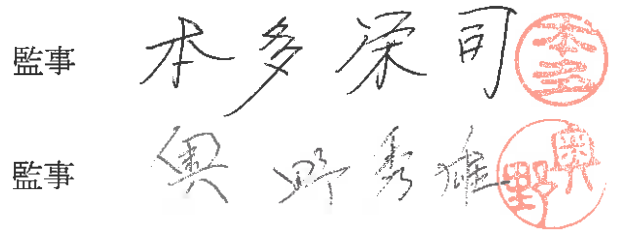 監事 本多栄司 本多
監事 奥野秀雄 奥野